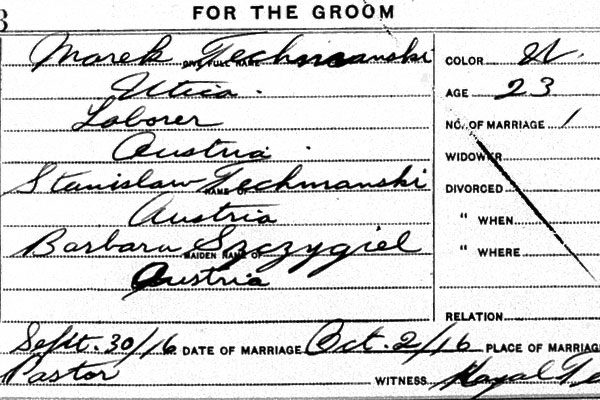 FOR THE GROOM
Marek Techmanski COLOR W.
GIVE FULL NAME
Utica. AGE 23
Laborer NO. OF MARRIAGE 1
Austria. WIDOWER
Stanislaw Techmanski DIVORCED
NAME OF
Austria " WHEN
Barbara Szczygiel " WHERE
MAIDEN NAME OF
Austria
RELATION
Sept. 30/16 DATE OF MARRIAGE Oct. 2/16 PLACE OF MARRIAGE
Pastor WITNESS